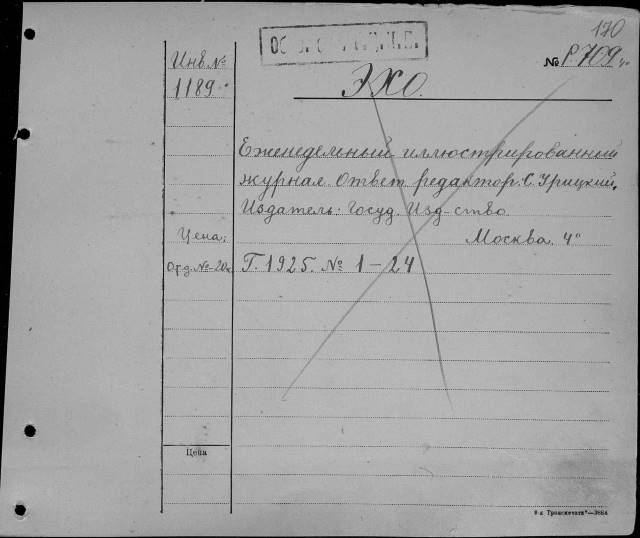 170
Инв. №
1189
№ Р.709
ЭХО.
Еженедельный иллюстрированный
журнал. Ответ. редактор: С. Урицкий.
Издатель: Госуд. Изд-ство.
Москва. 4°
Цена:
Г. 1925. № 1-24
Цена